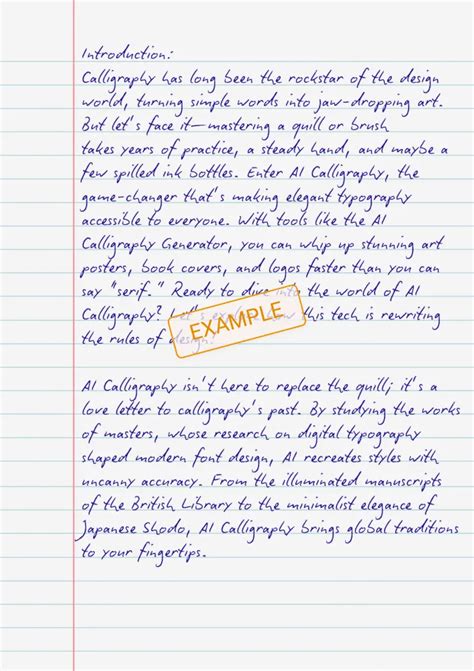 Introduction:
Calligraphy has long been the rockstar of the design
world, turning simple words into jaw-dropping art.
But let's face it—mastering a quill or brush
takes years of practice, a steady hand, and maybe a
few spilled ink bottles. Enter AI Calligraphy, the
game-changer that's making elegant typography
accessible to everyone. With tools like the AI
Calligraphy Generator, you can whip up stunning art
posters, book covers, and logos faster than you can
say "serif." Ready to dive into the world of AI
Calligraphy? Let's how this tech is rewriting
the rules of design?
EXAMPLE
AI Calligraphy isn't here to replace the quill; it's a
love letter to calligraphy's past. By studying the works
of masters, whose research on digital typography
shaped modern font design, AI recreates styles with
uncanny accuracy. From the illuminated manuscripts
of the British Library to the minimalist elegance of
Japanese Shodo, AI Calligraphy brings global traditions
to your fingertips.